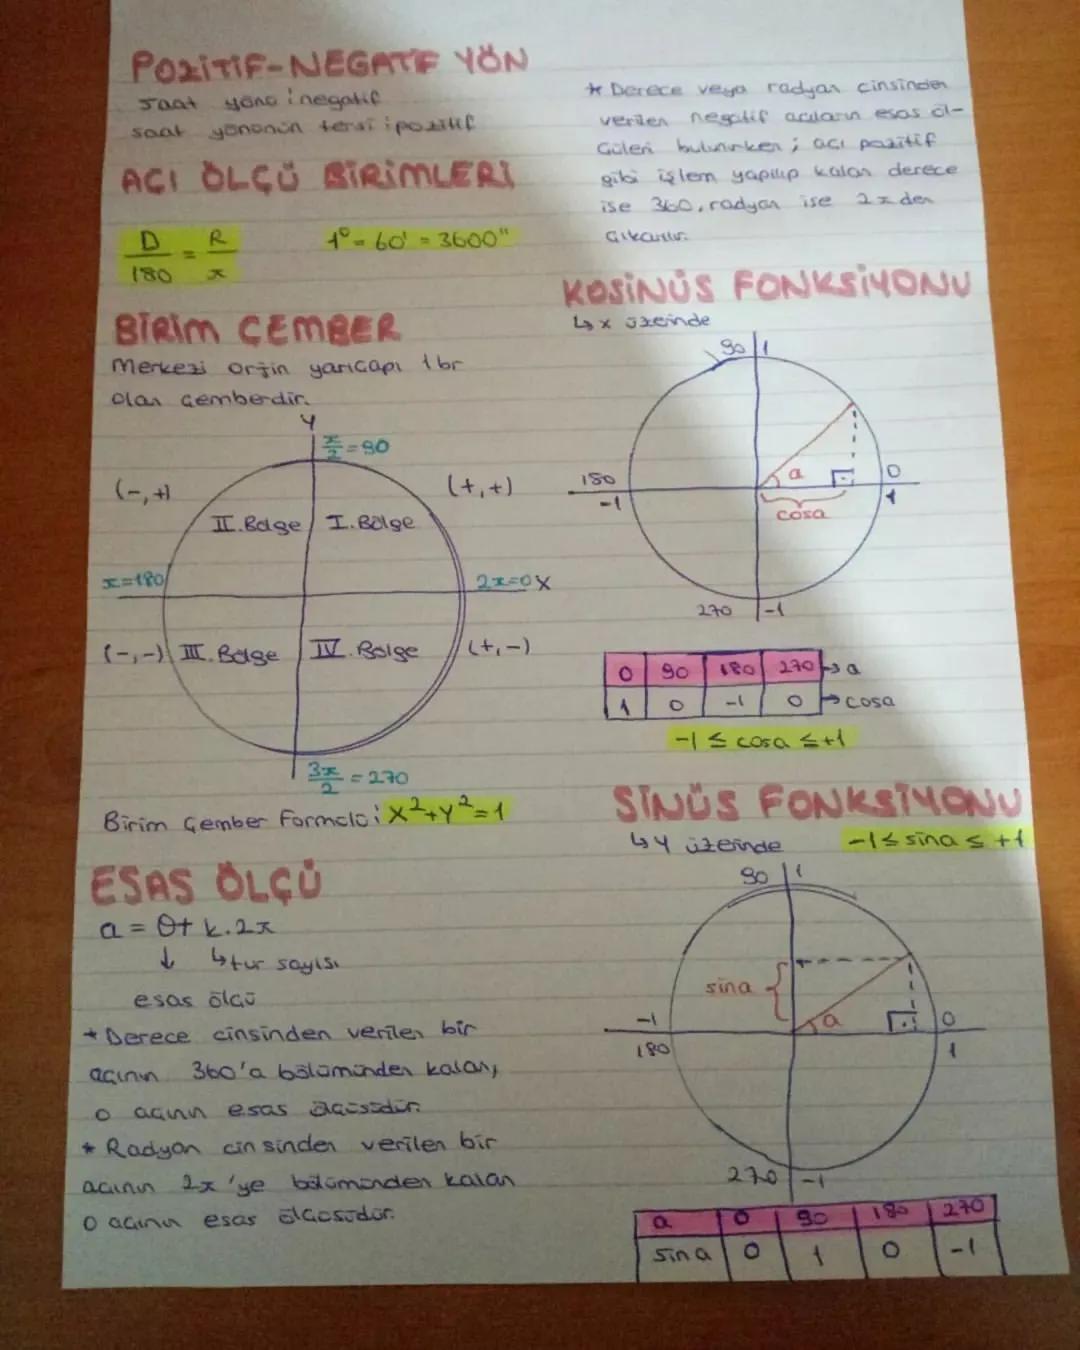 POZİTİF-NEGATİF YÖN
saat yönü: negatif
saat yönünün tersi: pozitif
AÇI ÖLÇÜ BİRİMLERİ
D/180 = R/π
1° = 60' = 3600"
BİRİM ÇEMBER
Merkezi orjin yarıçapı 1br
olan çemberdir.
y
π/2 = 90
(-,+)
(+,+)
II. Bölge
I. Bölge
π=180
2π=0
x
(-,-)
III. Bölge
IV. Bölge
(+,-)
3π/2 = 270
Birim Çember Formülü: x²+y²=1
ESAS ÖLÇÜ
a = θ+ k.2π
↓ ↳ tur sayısı
esas ölçü
* Derece cinsinden verilen bir
açının 360'a bölümünden kalan,
o açının esas ölçüsüdür.
* Radyan cinsinden verilen bir
açının 2π'ye bölümünden kalan
o açının esas ölçüsüdür.
* Derece veya radyan cinsinden
verilen negatif açıların esas öl-
çüleri bulunurken; açı pozitif
gibi işlem yapılıp kalan derece
ise 360, radyan ise 2π den
çıkarılır.
KOSİNÜS FONKSİYONU
↳ x üzerinde
90 1
180
-1
a
0
1
cosa
270 -1
0 90 180 270 → a
1 0 -1 0 → cosa
-1 ≤ cosa ≤ +1
SİNÜS FONKSİYONU
↳ y üzerinde
-1 ≤ sina ≤ +1
90 1
sina
-1
180
a
0
1
270 -1
a 0 90 180 270
sina 0 1 0 -1